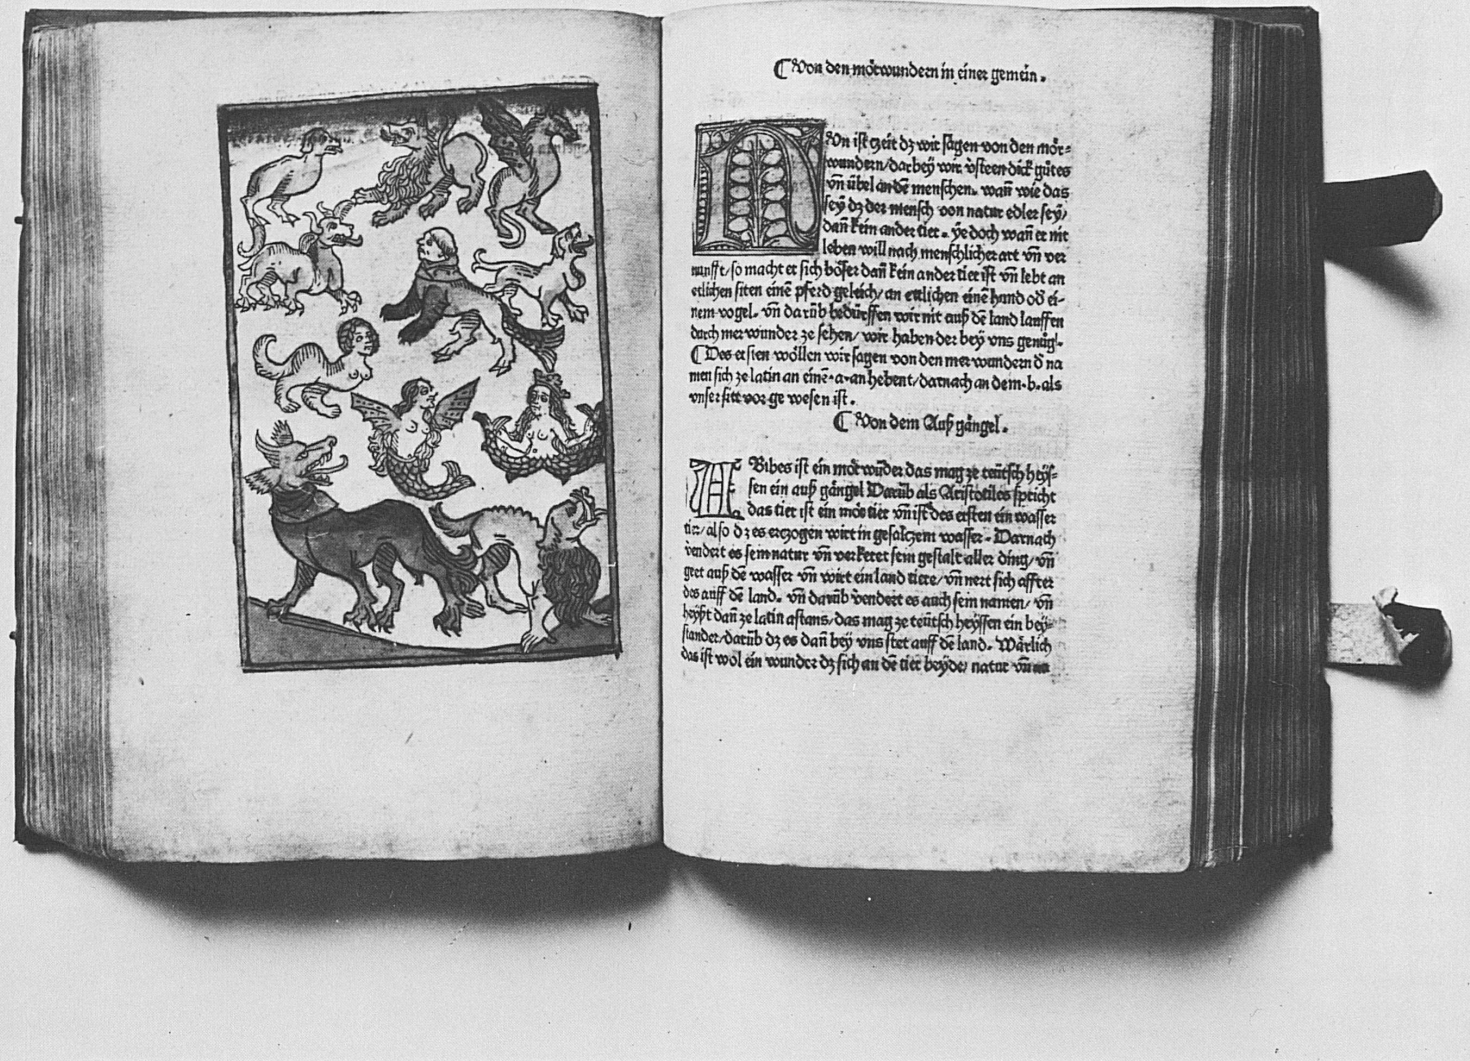 ⸿ Von den mörwundern in einer gemein.
NVn ist czeit dz wir sagen von den mör⸗
wundern/darbey wir v̈steen dick gůtes
vn̄ übel an dē menschen. wan̄ wie das
sey dz der mensch von natur edler sey/
dan̄ kein ander tier. ye doch wan̄ er nit
leben will nach menschlicher art vn̄ ver
nunfft/so macht er sich böser dan̄ kein ander tier ist vn̄ lebt an
etlichen siten einē pferd geleich/an ettlichen einē hund od̄ ei⸗
nem vogel. vn̄ darūb bedürffen wir nit auß dē land lauffen
durch merwunder ze sehen/wir haben der bey vns genůg.
⸿ Des ersten wöllen wir sagen von den merwundern d̄ na
men sich ze latin an einē.a.anhebent/darnach an dem.b.als
vnser sitt vor ge wesen ist.
⸿ Von dem Außgängel.
ABibes ist ein mörwūder das mag ze teütsch heys⸗
sen ein auß gängel Darūb als Aristotiles spricht
das tier ist ein mör tier vn̄ ist des ersten ein wasser
tier/also dz es erczogen wirt in gesalczem wasser. Darnach
vendert es sein natur vn̄ verkeret sein gestalt aller ding/vn̄
geet auß dē wasser vn̄ wirt ein land tiere/vn̄ nert sich affter
des auff dē land. vn̄ darūb vendert es auch sein namen/vn̄
heyßt dan̄ ze latin astans/das mag ze teütsch heyssen ein bey⸗
stander/darūb dz es dan̄ bey vns stet auff dē land. Wärlich
das ist wol ein wunder dz sich an dē tier beyde natur vn̄